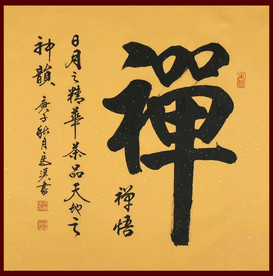 禪
禪悟
日月之精華茶品天地之
神韻 庚子秋月 書